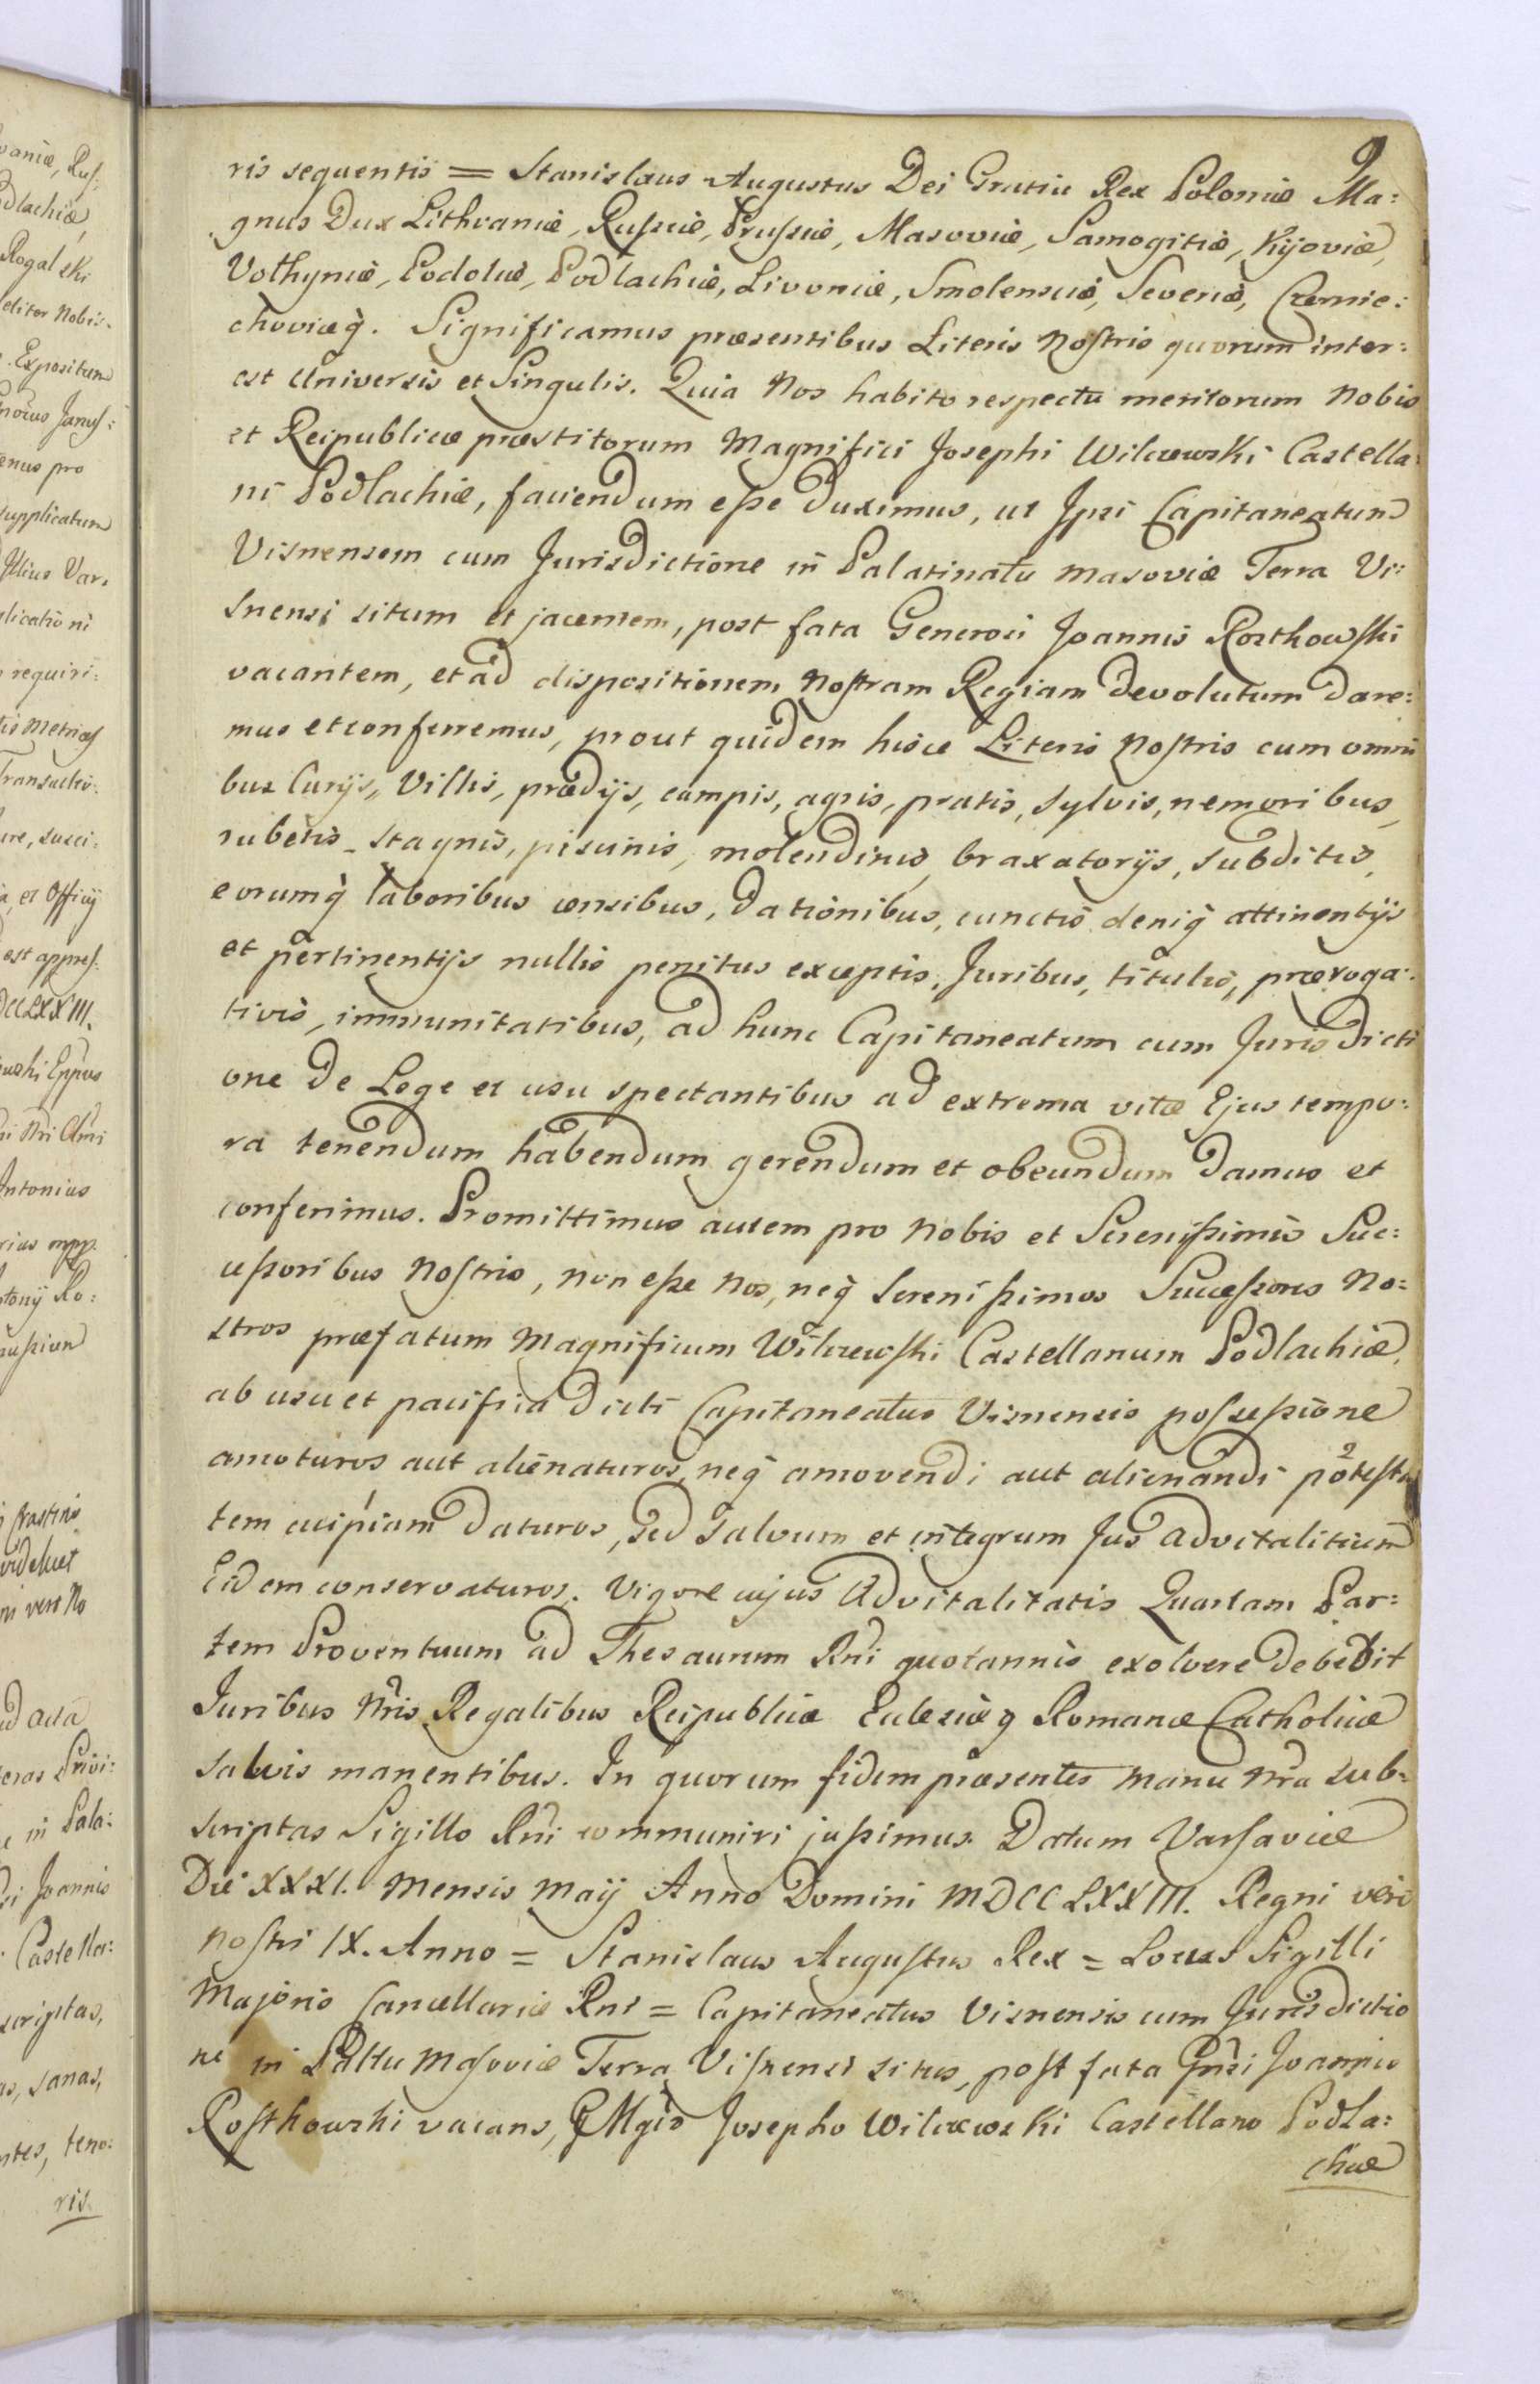 9
ris sequentis = Stanislaus Augustus Dei Gratia Rex Poloniæ Ma:
gnus Dux Lithvaniæ, Russiæ, Prussiæ, Masoviæ, Samogitiæ, Kijoviæ,
Volhyniæ, Podoliæ, Podlachiæ, Livoniæ, Smolensciæ, Severiæ, Czernie:
choviæq̀. Significamus præsentibus Literis Nostris quorum inter:
est Universis et Singulis. Quia Nos habito respectu meritorum Nobis
et Reipublicæ præstitorum Magnifici Josephi Wilczewski Castella:
ni Podlachiæ, faciendum esse duximus, ut Ipsi Capitaneatum
Visnensem cum Jurisdictione in Palatinatu Masoviæ Terra Vi:
snensi situm et jacentem, post fata Generosi Joannis Rosthowski
vacantem, et ad dispositionem Nostram Regiam devolutum dare:
mus et conferremus, prout quidem hisce Literis Nostris cum omni
bus Curijs, Villis, prædijs, campis, agris, pratis, sylvis, nemoribus,
rubetis, stagnis, piscinis, molendinis, braxatorijs, subditis,
eorumq̀ laboribus censibus, dationibus, cunctis deniq̀ attinentijs
et pertinentijs nullis penitus exceptis, Juribus, titulis, præroga:
tivis, immunitatibus, ad hunc Capitaneatum cum Jurisdicti
one de Lege et usu spectantibus ad extrema vitæ Ejus tempo:
ra tenendum habendum gerendum et obeundum damus et
conferimus. Promittimus autem pro Nobis et Serenissimis Suc:
cessoribus Nostris, non esse Nos, neq̀ Serenissimos Successores No:
stros præfatum Magnificum Wilczewski Castellanum Podlachiæ,
ab usu et pacifica dicti Capitaneatus Visnensis possessione
amoturos aut alienaturos, neq̀ amovendi aut alienandi potesta
tem cuipiam daturos, sed salvum et integrum Jus advitalitium
Eidem conservaturos. Vigore cujus Advitalitatis Quartam Par:
tem Proventuum ad Thesaurum Rni quotannis exolvere debebit
Juribus Nris Regalibus Reipublicæ Eclesiæq Romanæ Catholicæ
salvis manentibus. In quorum fidem præsentes manu Nra sub:
scriptas Sigillo Rni communiri jussimus. Datum Varsaviæ
Die XXXI. Mensis Maij Anno Domini MDCCLXXIII. Regni vero
nostri IX. Anno = Stanislaus Augustus Rex = Locus Sigilli
Majoris Cancellariæ Rni = Capitaneatus Visnensis cum Jurisdictio
ne in Pallu Masoviæ Terra Visnensi situs, post fata Gnsi Joannis
Rosthowski vacans, Mgco Josepho Wilczewski Castellano Podla:
chiæ